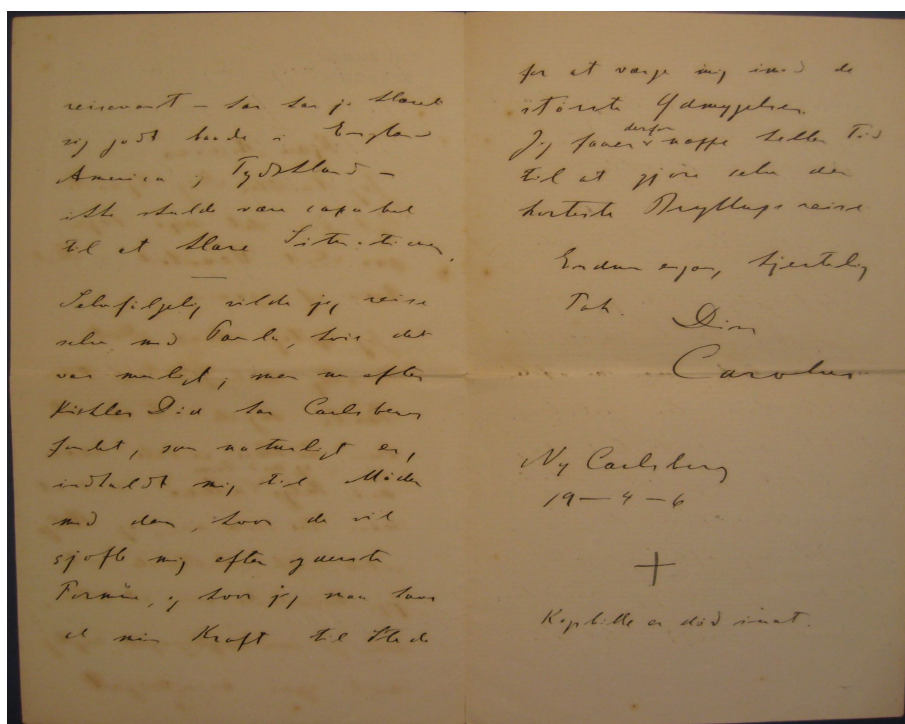 reisevant – han har jo klaret
sig godt baade i England
America og Tydskland –
ikke skulde være capabel
til at klare Situationen.
Selvfølgelig vilde jeg reise
selv med Paula, hvis det
var muligt; men nu efter
Død har Carlsberg
fondet, som naturligt er,
indbudt mig til Møder
med dem, hvor de vil
sjofle mig efter yderste
Formåen, og hvor jeg maa have
al min Kraft til Stede
for at værge mig imod de
største Ydmygelser.
Jeg faaer derfor næppe heller Tid
til at gjøre selv den
korteste Bryllupsreise
Endnu engang hjertelig
Tak. Din
Carolus
Ny Carlsberg
19 – 4 – 6
+
er død inat.